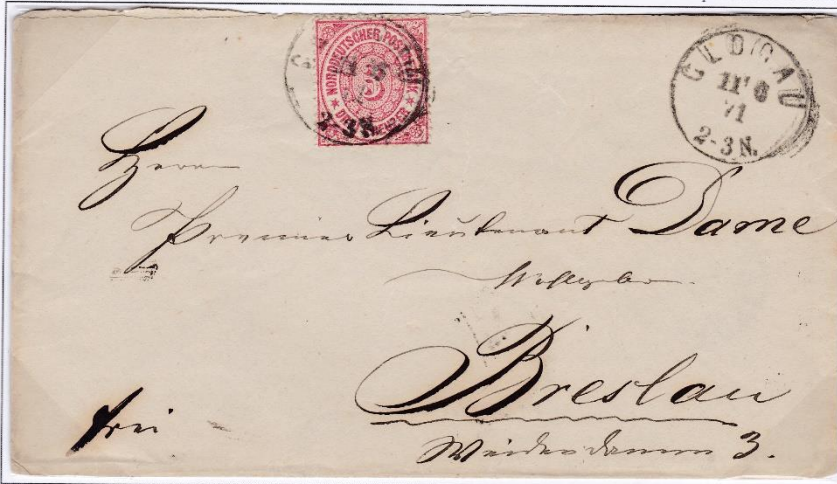 NORDDEUTSCHER POSTBEZIRK
GLOGAU
11 6
71
2-3 N.
2-3 N.
Herrn
Premier Lieutenant Dame
Breslau
frei
Weidendamm 3.